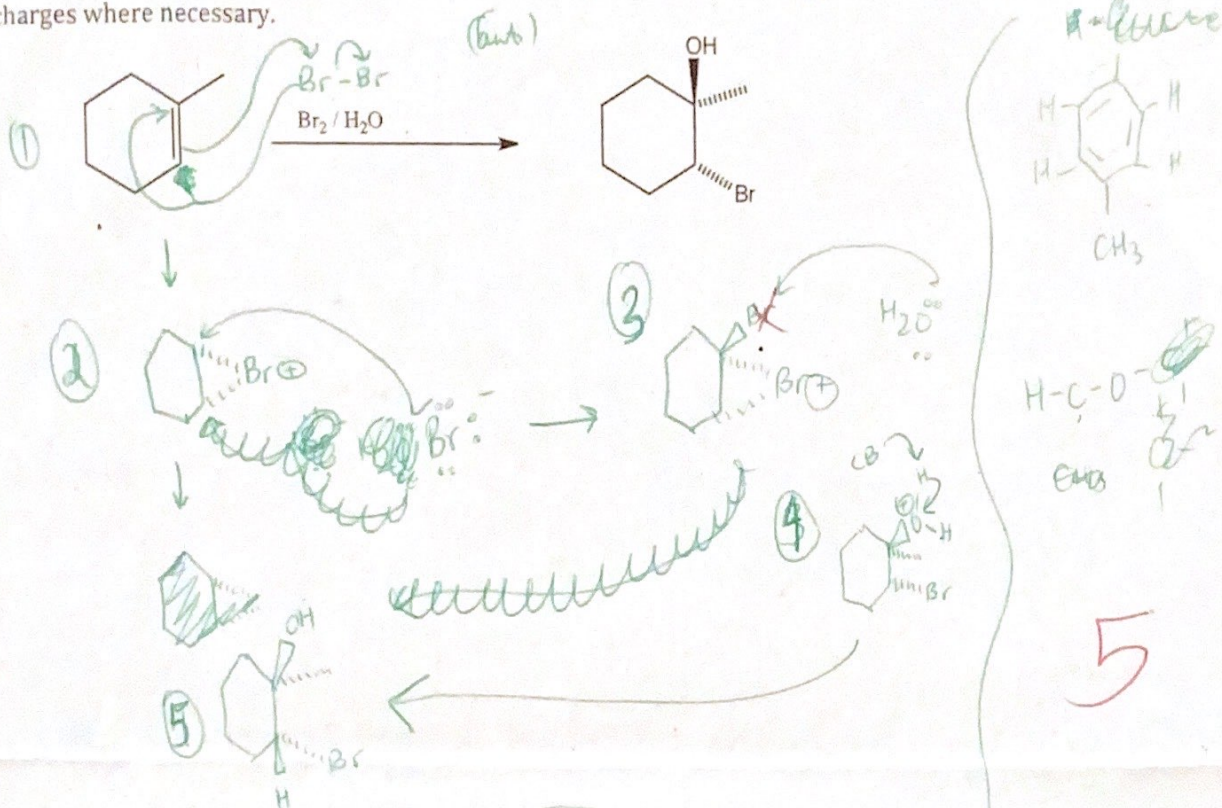 charges where necessary.
OH
Br-Br
Br₂ / H₂O
①
Br
H H
H H
CH₃
②
Br⊕
Br:
③
H₂O
Br⊕
H-C-O
④
H
⊕
O-H
Br
5
OH
⑤
Br
H